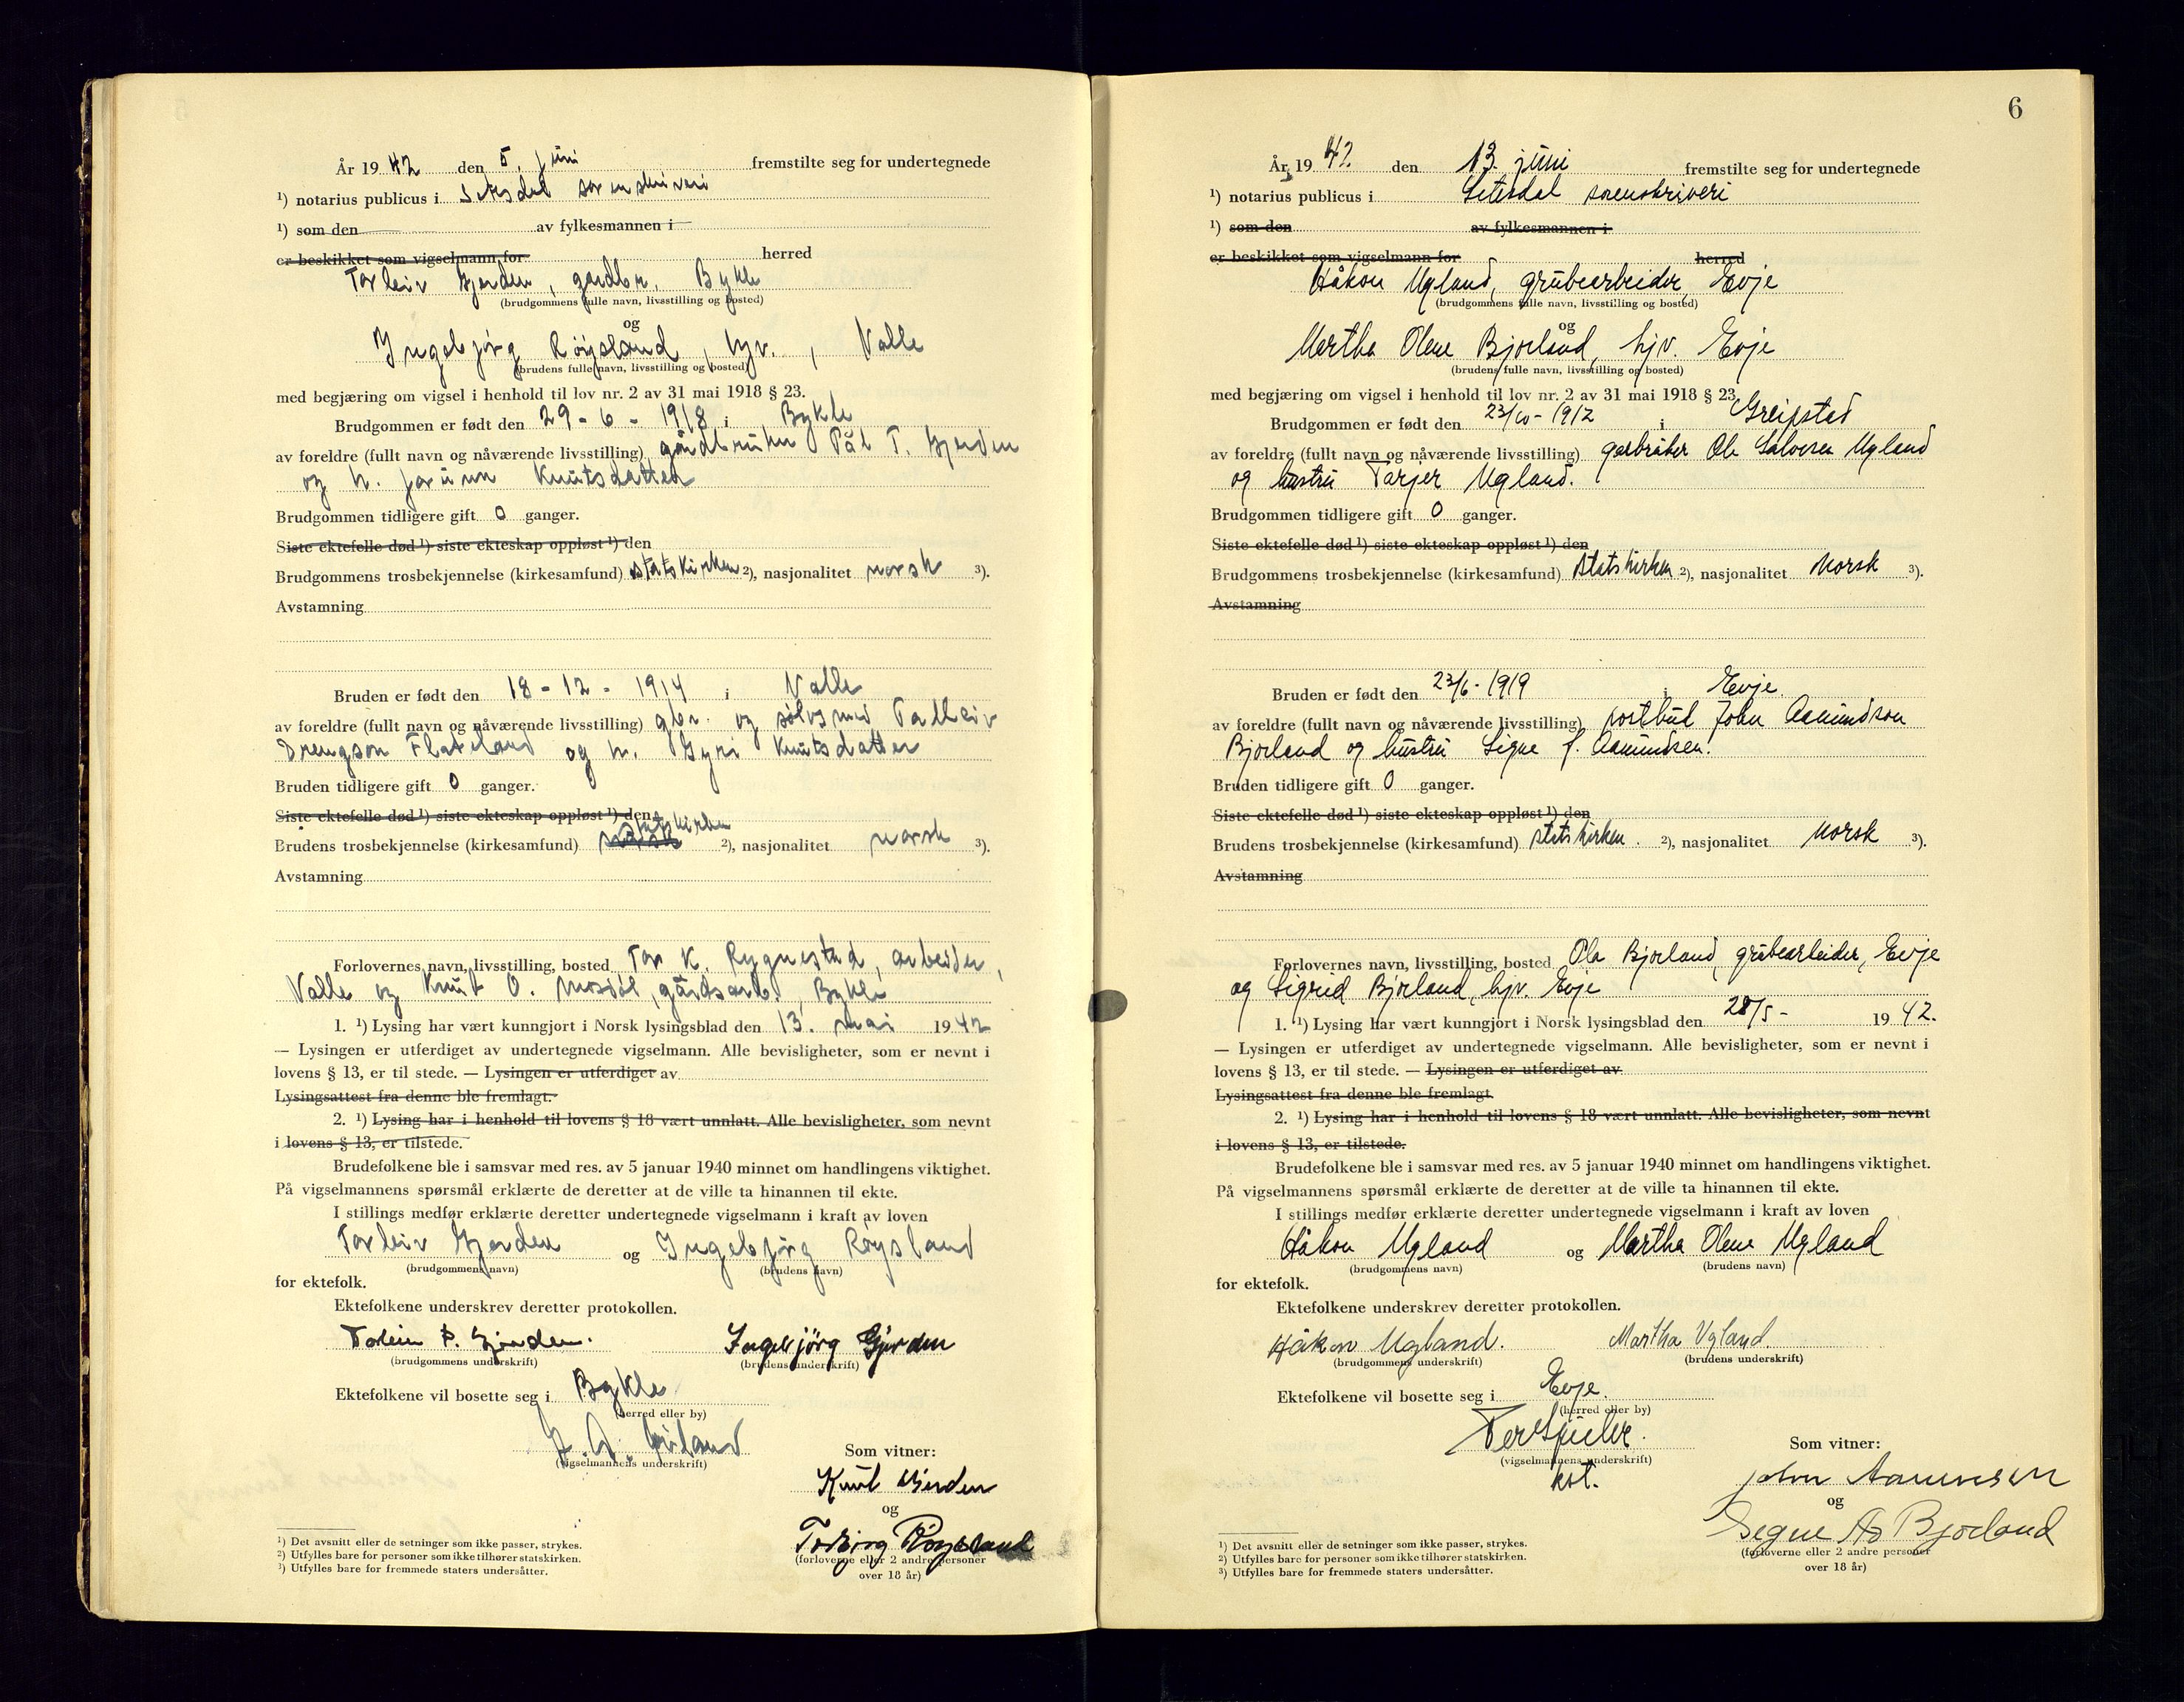 År 1942 den 5. juni fremstilte seg for undertegnede
¹) notarius publicus i Setesdal sorenskriveri
¹) som den av fylkesmannen i
er beskikket som vigselmann for herred
Torleiv Gjerden, gardbr. Bykle
(brudgommens fulle navn, livsstilling og bosted)
og
Ingebjørg Röysland, hjv., Valle
(brudens fulle navn, livsstilling og bosted)
med begjæring om vigsel i henhold til lov nr. 2 av 31 mai 1918 § 23.
Brudgommen er født den 29-6-1918 i Bykle
av foreldre (fullt navn og nåværende livsstilling) gårdbruker Pål T. Gjerden
og h. Jorunn Knutsdatter
Brudgommen tidligere gift 0 ganger.
Siste ektefelle død ¹) siste ekteskap oppløst ¹) den
Brudgommens trosbekjennelse (kirkesamfund) statskirken ²), nasjonalitet norsk ³).
Avstamning
Bruden er født den 18-12-1914 i Valle
av foreldre (fullt navn og nåværende livsstilling) gbr. og sølvsmed Talleiv
Drengson Flateland og h. Gyri Knutsdatter
Bruden tidligere gift 0 ganger.
Siste ektefelle død ¹) siste ekteskap oppløst ¹) den
Brudens trosbekjennelse (kirkesamfund) norsk statskirken ²), nasjonalitet norsk ³).
Avstamning
Forlovernes navn, livsstilling, bosted Tor K. Rygnestad, arbeider,
Valle og Knut O. Mosdöl, gårdsarb., Bykle
1. ¹) Lysing har vært kunngjort i Norsk lysingsblad den 13. mai 1942
— Lysingen er utferdiget av undertegnede vigselmann. Alle bevisligheter, som er nevnt i
lovens § 13, er til stede. — Lysingen er utferdiget av
Lysingsattest fra denne ble fremlagt.
2. ¹) Lysing har i henhold til lovens § 18 vært unnlatt. Alle bevisligheter, som nevnt
i lovens § 13, er tilstede.
Brudefolkene ble i samsvar med res. av 5 januar 1940 minnet om handlingens viktighet.
På vigselmannens spørsmål erklærte de deretter at de ville ta hinannen til ekte.
I stillings medfør erklærte deretter undertegnede vigselmann i kraft av loven
Torleiv Gjerden og Ingebjørg Röysland
(brudgommens navn) (brudens navn)
for ektefolk.
Ektefolkene underskrev deretter protokollen.
Torleiv P. Gjerden. Ingebjörg Gjerden
(brudgommens underskrift) (brudens underskrift)
Ektefolkene vil bosette seg i Bykle
(herred eller by)
(vigselmannens underskrift)
Som vitner:
Knut Gjerden
og
Torbjörg Röysland
(forloverne eller 2 andre personer
over 18 år)
¹) Det avsnitt eller de setninger som ikke passer, strykes.
²) Utfylles bare for personer som ikke tilhører statskirken.
³) Utfylles bare for fremmede staters undersåtter.
6
År 1942 den 13. juni fremstilte seg for undertegnede
¹) notarius publicus i Setesdal sorenskriveri
¹) som den av fylkesmannen i
er beskikket som vigselmann for herred
Håkon Ugland, grubearbeider, Evje
(brudgommens fulle navn, livsstilling og bosted)
og
Martha Olene Bjorland, hjv. Evje
(brudens fulle navn, livsstilling og bosted)
med begjæring om vigsel i henhold til lov nr. 2 av 31 mai 1918 § 23.
Brudgommen er født den 23/10-1912 i Greipstad
av foreldre (fullt navn og nåværende livsstilling) garbruker Ole Salvesen Ugland
og hustru Tarjer Ugland.
Brudgommen tidligere gift 0 ganger.
Siste ektefelle død ¹) siste ekteskap oppløst ¹) den
Brudgommens trosbekjennelse (kirkesamfund) statskirken ²), nasjonalitet norsk ³).
Avstamning
Bruden er født den 23/6-1919 i Evje.
av foreldre (fullt navn og nåværende livsstilling) postbud John Aamundson
Bjorland og hustru Signe f. Aamundsen.
Bruden tidligere gift 0 ganger.
Siste ektefelle død ¹) siste ekteskap oppløst ¹) den
Brudens trosbekjennelse (kirkesamfund) statskirken. ²), nasjonalitet norsk ³).
Avstamning
Forlovernes navn, livsstilling, bosted Ola Bjorland, grubearbeider, Evje
og Sigrid Bjorland, hjv. Evje
1. ¹) Lysing har vært kunngjort i Norsk lysingsblad den 28/5- 1942.
— Lysingen er utferdiget av undertegnede vigselmann. Alle bevisligheter, som er nevnt i
lovens § 13, er til stede. — Lysingen er utferdiget av
Lysingsattest fra denne ble fremlagt.
2. ¹) Lysing har i henhold til lovens § 18 vært unnlatt. Alle bevisligheter, som nevnt
i lovens § 13, er tilstede.
Brudefolkene ble i samsvar med res. av 5 januar 1940 minnet om handlingens viktighet.
På vigselmannens spørsmål erklærte de deretter at de ville ta hinannen til ekte.
I stillings medfør erklærte deretter undertegnede vigselmann i kraft av loven
Håkon Ugland og Martha Olene Ugland
(brudgommens navn) (brudens navn)
for ektefolk.
Ektefolkene underskrev deretter protokollen.
Håkon Ugland. Martha Ugland.
(brudgommens underskrift) (brudens underskrift)
Ektefolkene vil bosette seg i Evje.
(herred eller by)
(vigselmannens underskrift)
kst.
Som vitner:
John Aamunsen
og
Segne As Bjorland
(forloverne eller 2 andre personer
over 18 år)
¹) Det avsnitt eller de setninger som ikke passer, strykes.
²) Utfylles bare for personer som ikke tilhører statskirken.
³) Utfylles bare for fremmede staters undersåtter.